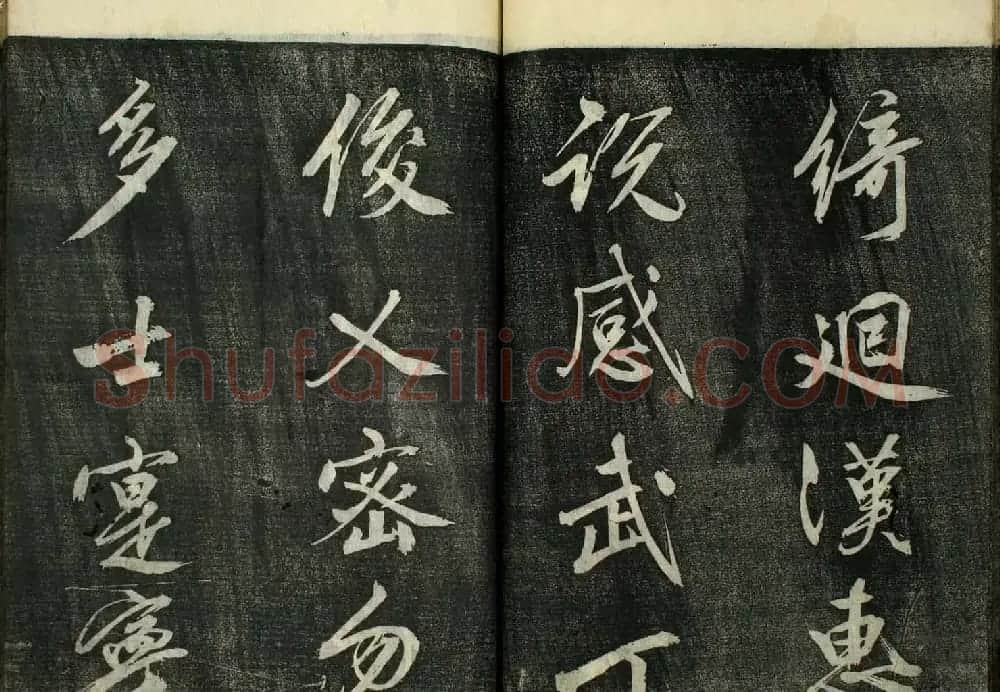 綺迴漢惠
説感武丁
俊乂密勿
多士寔寧
Shufazilido.COM